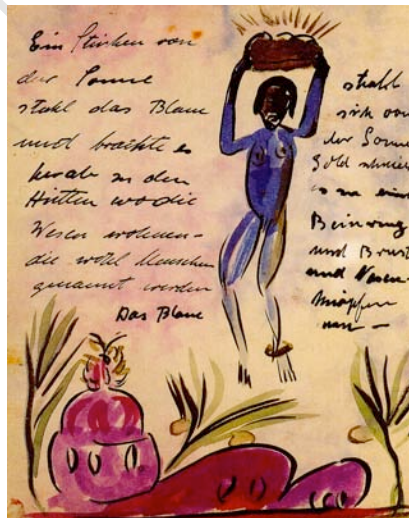 Ein Stücken von
der Sonne
stahl das Blaue
und brachte es
herab zu den
Hütten wo die
Wesen wohnen -
die wohl Menschen
genannt werden
Das Blaue
stahl
sich von
der Sonne
Gold
es zu
Beinring
und Brust
und Nasen-
knöpfen
nun -